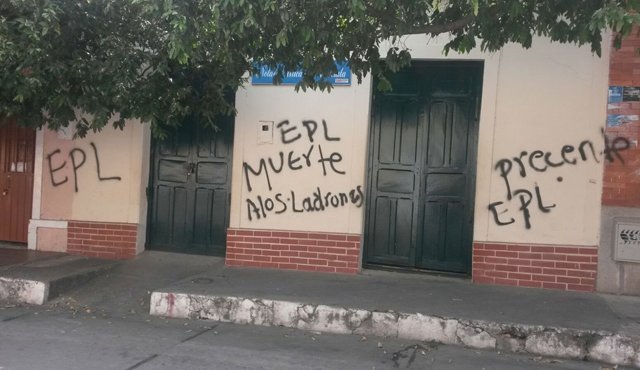 EPL
EPL
MUErte
Alos.Ladrones
precente
EPL.